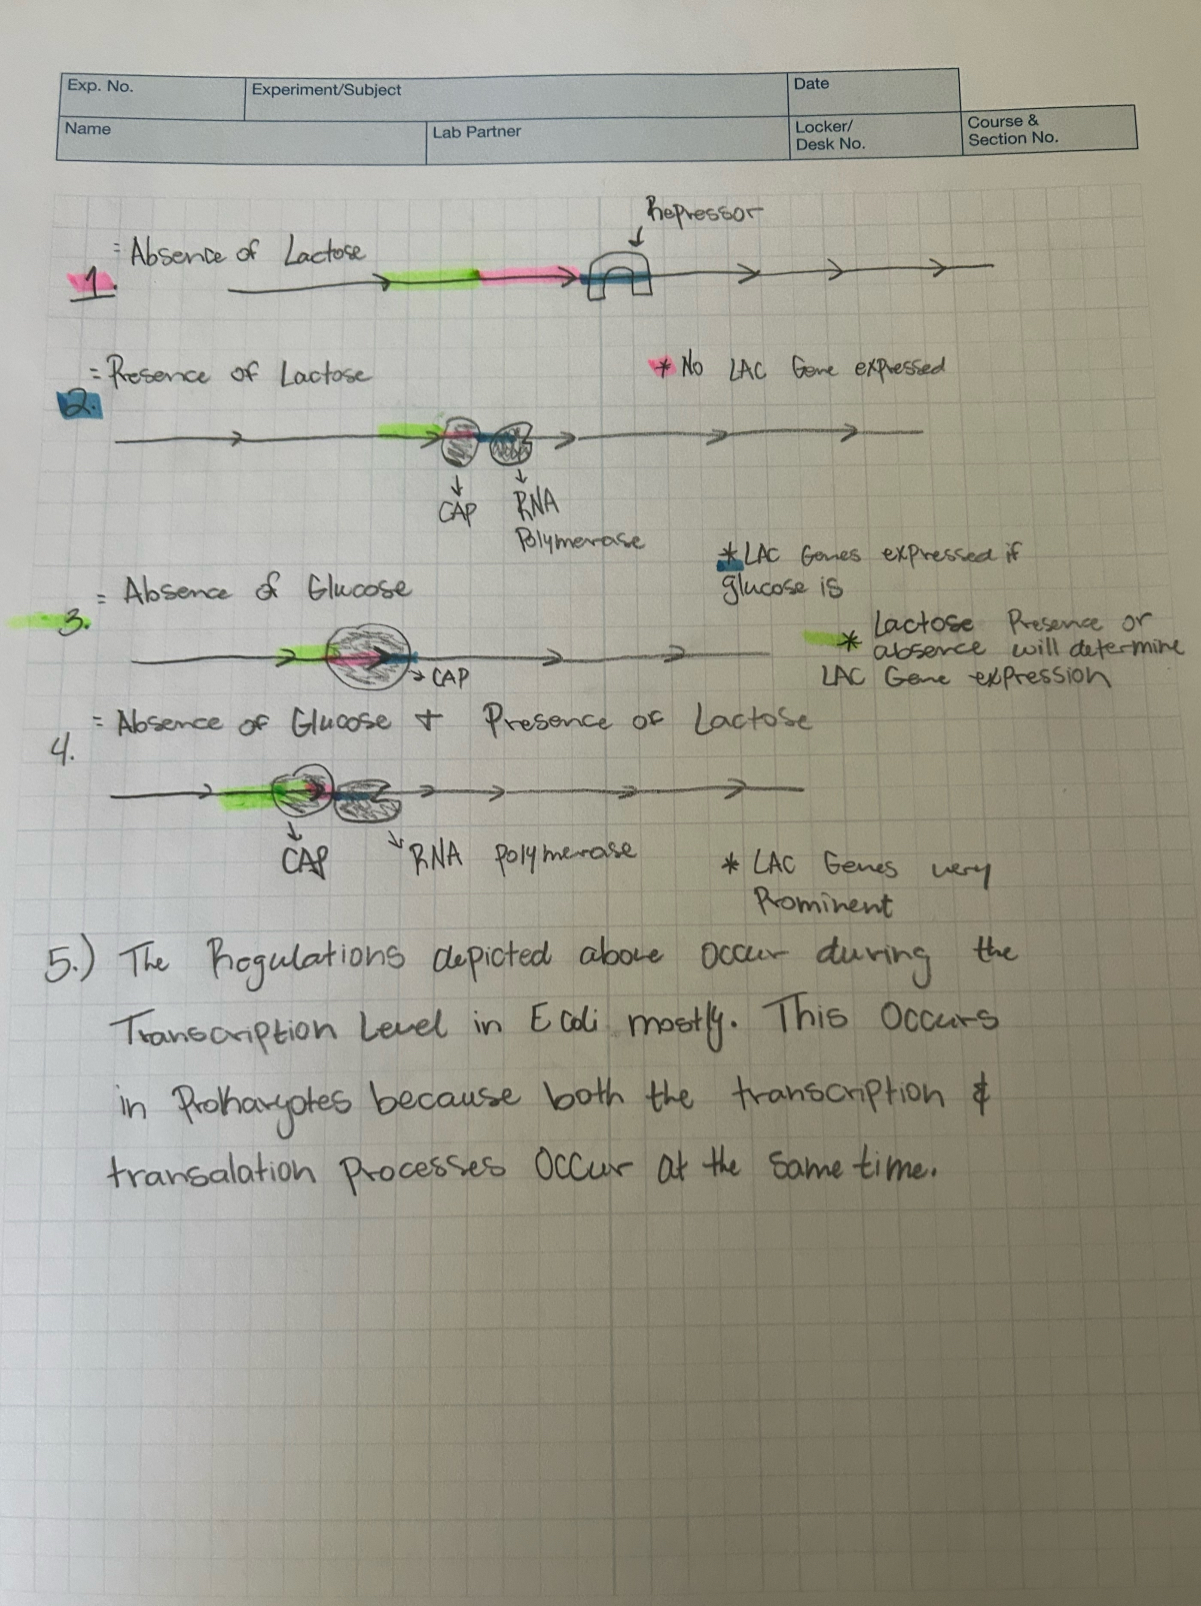 Exp. No.
Experiment/Subject
Date
Name
Lab Partner
Locker/
Desk No.
Course &
Section No.
Repressor
= Absence of Lactose
1.
= Presence of Lactose
* No LAC Gene expressed
2.
CAP
RNA
Polymerase
* LAC Genes expressed if
glucose is
= Absence of Glucose
3.
* Lactose Presence or
absence will determine
LAC Gene expression
CAP
= Absence of Glucose + Presence of Lactose
4.
CAP
RNA polymerase
* LAC Genes very
Prominent
5.) The Regulations depicted above occur during the
Transcription Level in E Coli mostly. This Occurs
in Prokaryotes because both the transcription &
transalation processes occur at the same time.